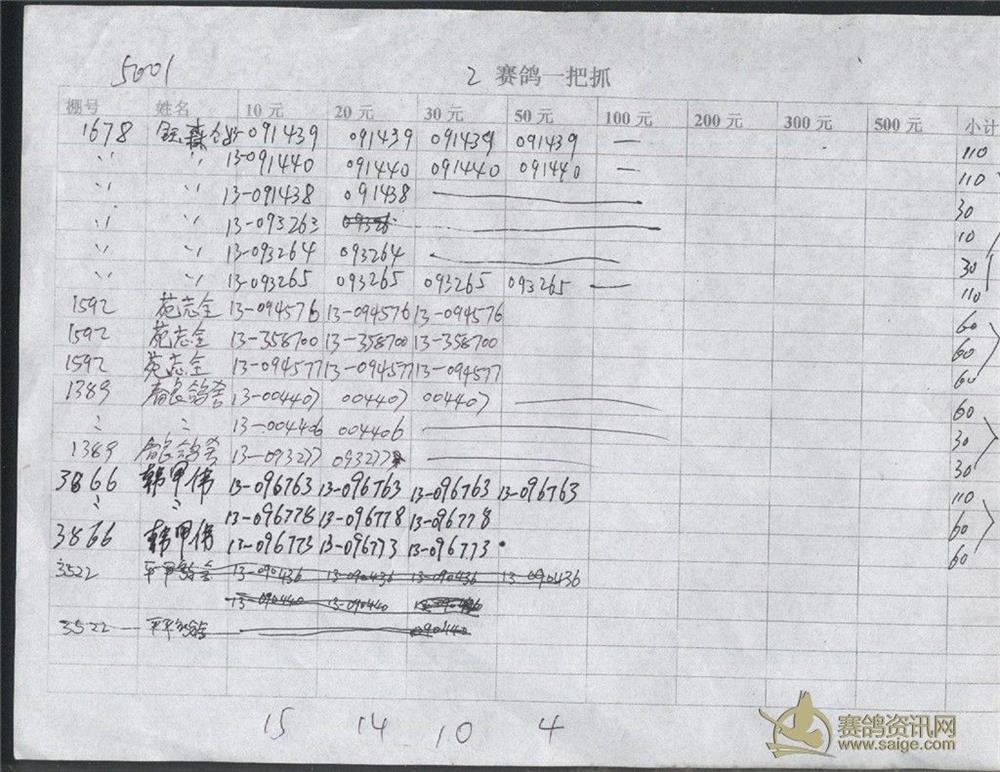 5001
2 赛鸽一把抓
棚号 姓名 10元 20元 30元 50元 100元 200元 300元 500元 小计
1678 13-091439 091439 091439 091439 — 110
〃 〃 13-091440 091440 091440 091440 — 110
〃 〃 13-091438 091438 — 30
〃 〃 13-093263 — 10
〃 〃 13-093264 093264 — 30
〃 〃 13-093265 093265 093265 093265 — 110
1592 苑志全 13-094576 13-094576 13-094576 60
1592 苑志全 13-358700 13-358700 13-358700 60
1592 苑志全 13-094577 13-094577 13-094577 60
1389 鸽舍 13-004407 004407 004407 — 60
〃 〃 13-004406 004406 — 30
1389 鸽舍 13-093277 093277 — 30
3866 韩甲伟 13-096763 13-096763 13-096763 13-096763 110
〃 〃 13-096778 13-096778 13-096778 60
3866 韩甲伟 13-096773 13-096773 13-096773 60
3522 13-090436 13-090436 13-090436 13-090436
13-090440 13-090440
3522 090440
15 14 10 4
赛鸽资讯网
www.saige.com